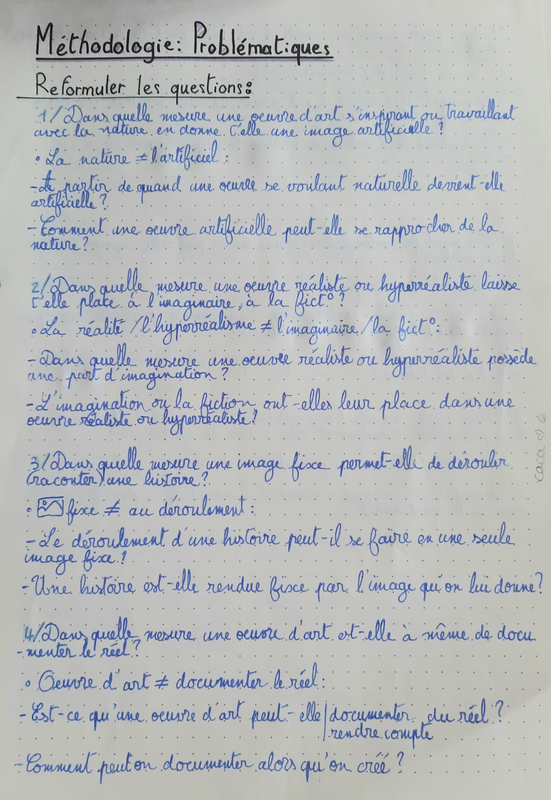 Méthodologie: Problématiques
Reformuler les questions:
1/ Dans quelle mesure une oeuvre d'art s'inspirant ou travaillant
avec la nature en donne t'elle une image artificielle ?
• La nature ≠ l'artificiel :
- A partir de quand une oeuvre se voulant naturelle devient-elle
artificielle ?
- Comment une oeuvre artificielle peut-elle se rapprocher de la
nature ?
2/ Dans quelle mesure une oeuvre réaliste ou hyperréaliste laisse
t'elle place à l'imaginaire, à la fict° ?
• La réalité / l'hyperréalisme ≠ l'imaginaire / la fict° :
- Dans quelle mesure une oeuvre réaliste ou hyperréaliste possède
une part d'imagination ?
- L'imagination ou la fiction ont-elles leur place dans une
oeuvre réaliste ou hyperréaliste ?
3/ Dans quelle mesure une image fixe permet-elle de dérouler
(raconter) une histoire ?
• fixe ≠ au déroulement :
- Le déroulement d'une histoire peut-il se faire en une seule
image fixe ?
- Une histoire est-elle rendue fixe par l'image qu'on lui donne ?
4/ Dans quelle mesure une oeuvre d'art est-elle à même de docu
-menter le réel ?
• Oeuvre d'art ≠ documenter le réel :
- Est-ce qu'une oeuvre d'art peut-elle | documenter du réel ?
rendre compte
- Comment peut on documenter alors qu'on créé ?